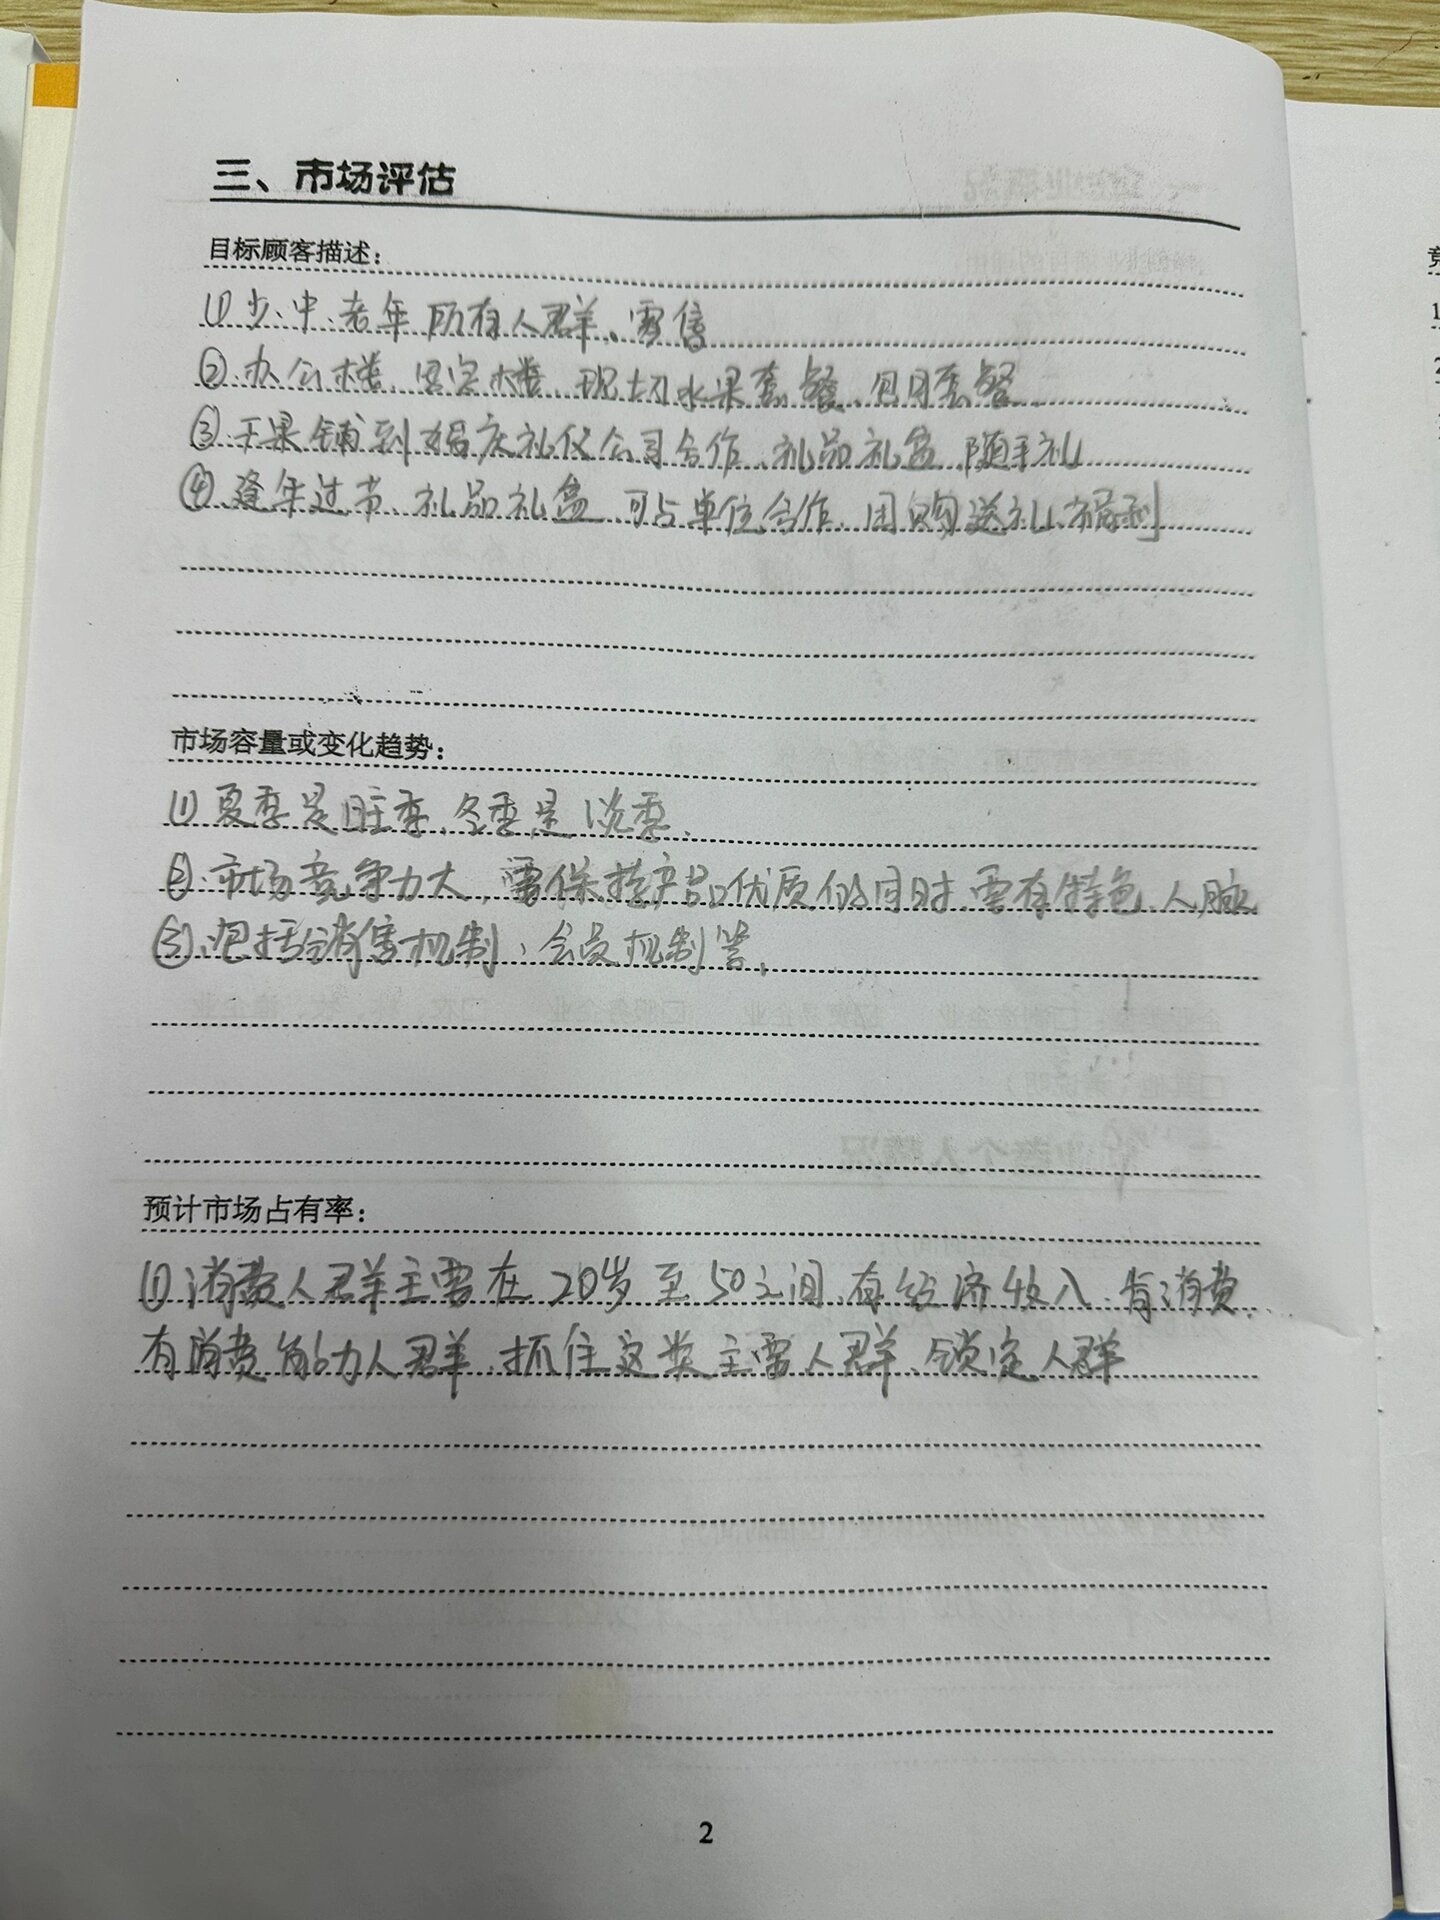 三、市场评估
目标顾客描述：
① 少、中、老年所有人群、零售
② 办公楼、写字楼、现切水果套餐、包月套餐
③ 干果铺到婚庆礼仪公司合作、礼品礼盒、随手礼
④ 逢年过节、礼品礼盒、可占单位合作、团购送礼、福利
市场容量或变化趋势：
① 夏季是旺季、冬季是淡季、
② 市场竞争力大、需保持产品优质的同时、需有特色、人脉
③、包括销售机制、会员机制等、
预计市场占有率：
① 消费人群主要在20岁至50之间、有经济收入、肯消费、
有消费能力人群、抓住这类主要人群、锁定人群
2